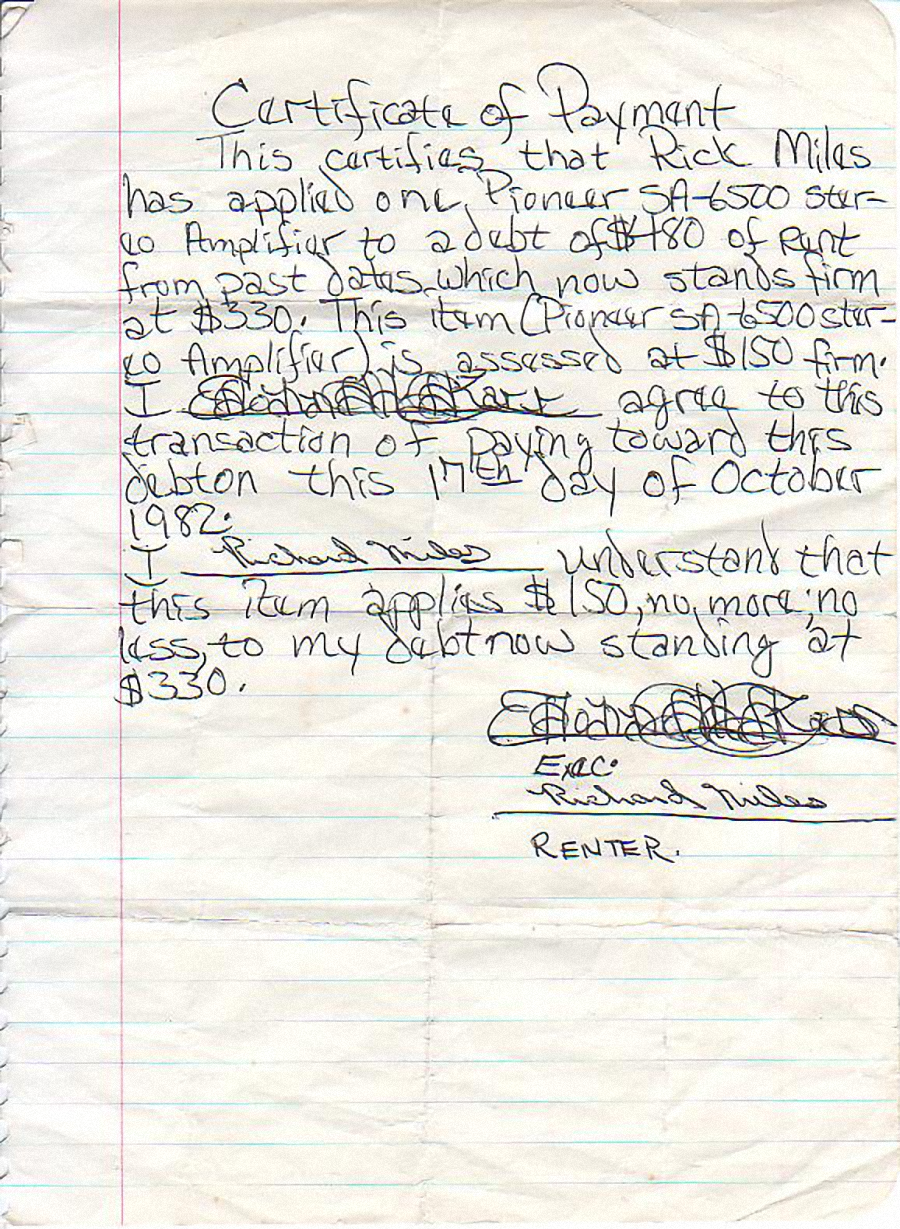 Certificate of Payment
This certifies that Rick Miles
has applied one, Pioneer SA-6500 ster-
eo Amplifier to a debt of $480 of rent
from past dates, which now stands firm
at $330. This item (Pioneer SA-6500 ster-
eo Amplifier) is assessed at $150 firm.
I agree to this
transaction of paying toward this
debt on this 17th day of October
1982.
I Richard Miles understand that
this item applies $150, no, more; no
less, to my debt now standing at
$330.
Exec.
Richard Miles
RENTER.